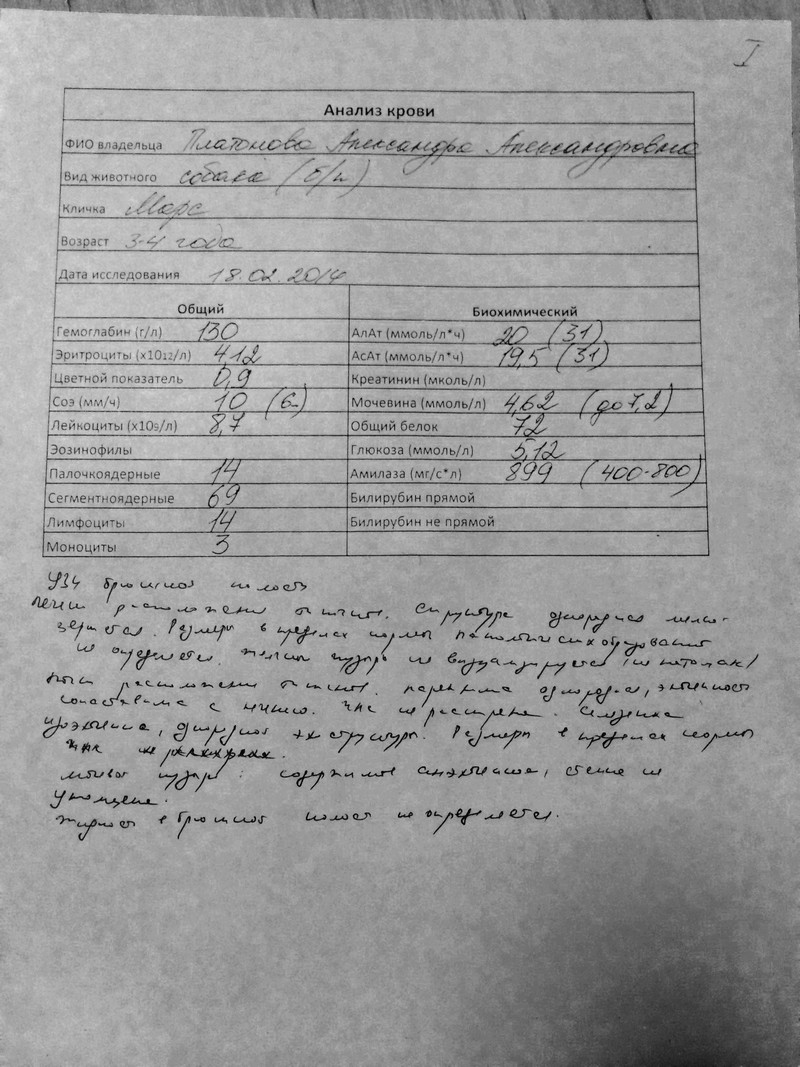 I
Анализ крови
ФИО владельца Платонова Александра Александровна
Вид животного собака (б/п)
Кличка Марс
Возраст 3-4 года
Дата исследования 18.02.2014
Общий Биохимический
Гемоглабин (г/л) 130 АлАт (ммоль/л*ч) 20 (31)
Эритроциты (х1012/л) 4,12 АсАт (ммоль/л*ч) 19,5 (31)
Цветной показатель 0,9 Креатинин (мколь/л)
Соэ (мм/ч) 10 Мочевина (ммоль/л) 4,62 (до 7,2)
Лейкоциты (х109/л) 8,7 Общий белок 72
Эозинофилы Глюкоза (ммоль/л) 5,12
Палочкоядерные 14 Амилаза (мг/с*л) 899 (400-800)
Сегментноядерные 69 Билирубин прямой
Лимфоциты 14 Билирубин не прямой
Моноциты 3
УЗИ брюшной полости
печень расположена типично. Структура однородная мелко-
зернистая. Размеры в пределах нормы
не определяется. желчный пузырь не визуализируется
расположены типично. паренхима однородная, эхогенность
сопоставима с печенью. не расширена. Селезенка
однородной эхоструктуры. Размеры в пределах нормы
не
мочевой пузырь: содержимое анэхогенное, стенки не
утолщены.
жидкость в брюшной полости не определяется.